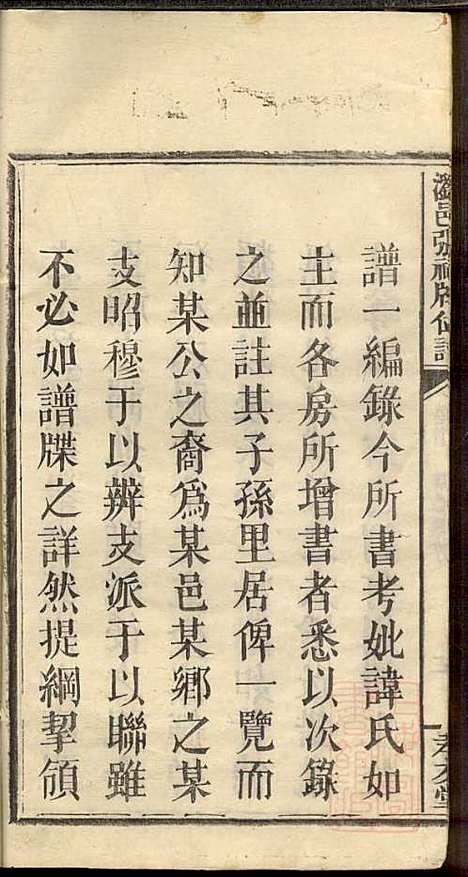 瀏邑張祠牌位譜
譜一編錄今所書考妣諱氏如
主而各房所增書者悉以次錄
之並註其子孫里居俾一覽而
知某公之裔爲某邑某鄉之某
支昭穆于以辨支派于以聯雖
不必如譜牒之詳然提綱挈領
孝友堂